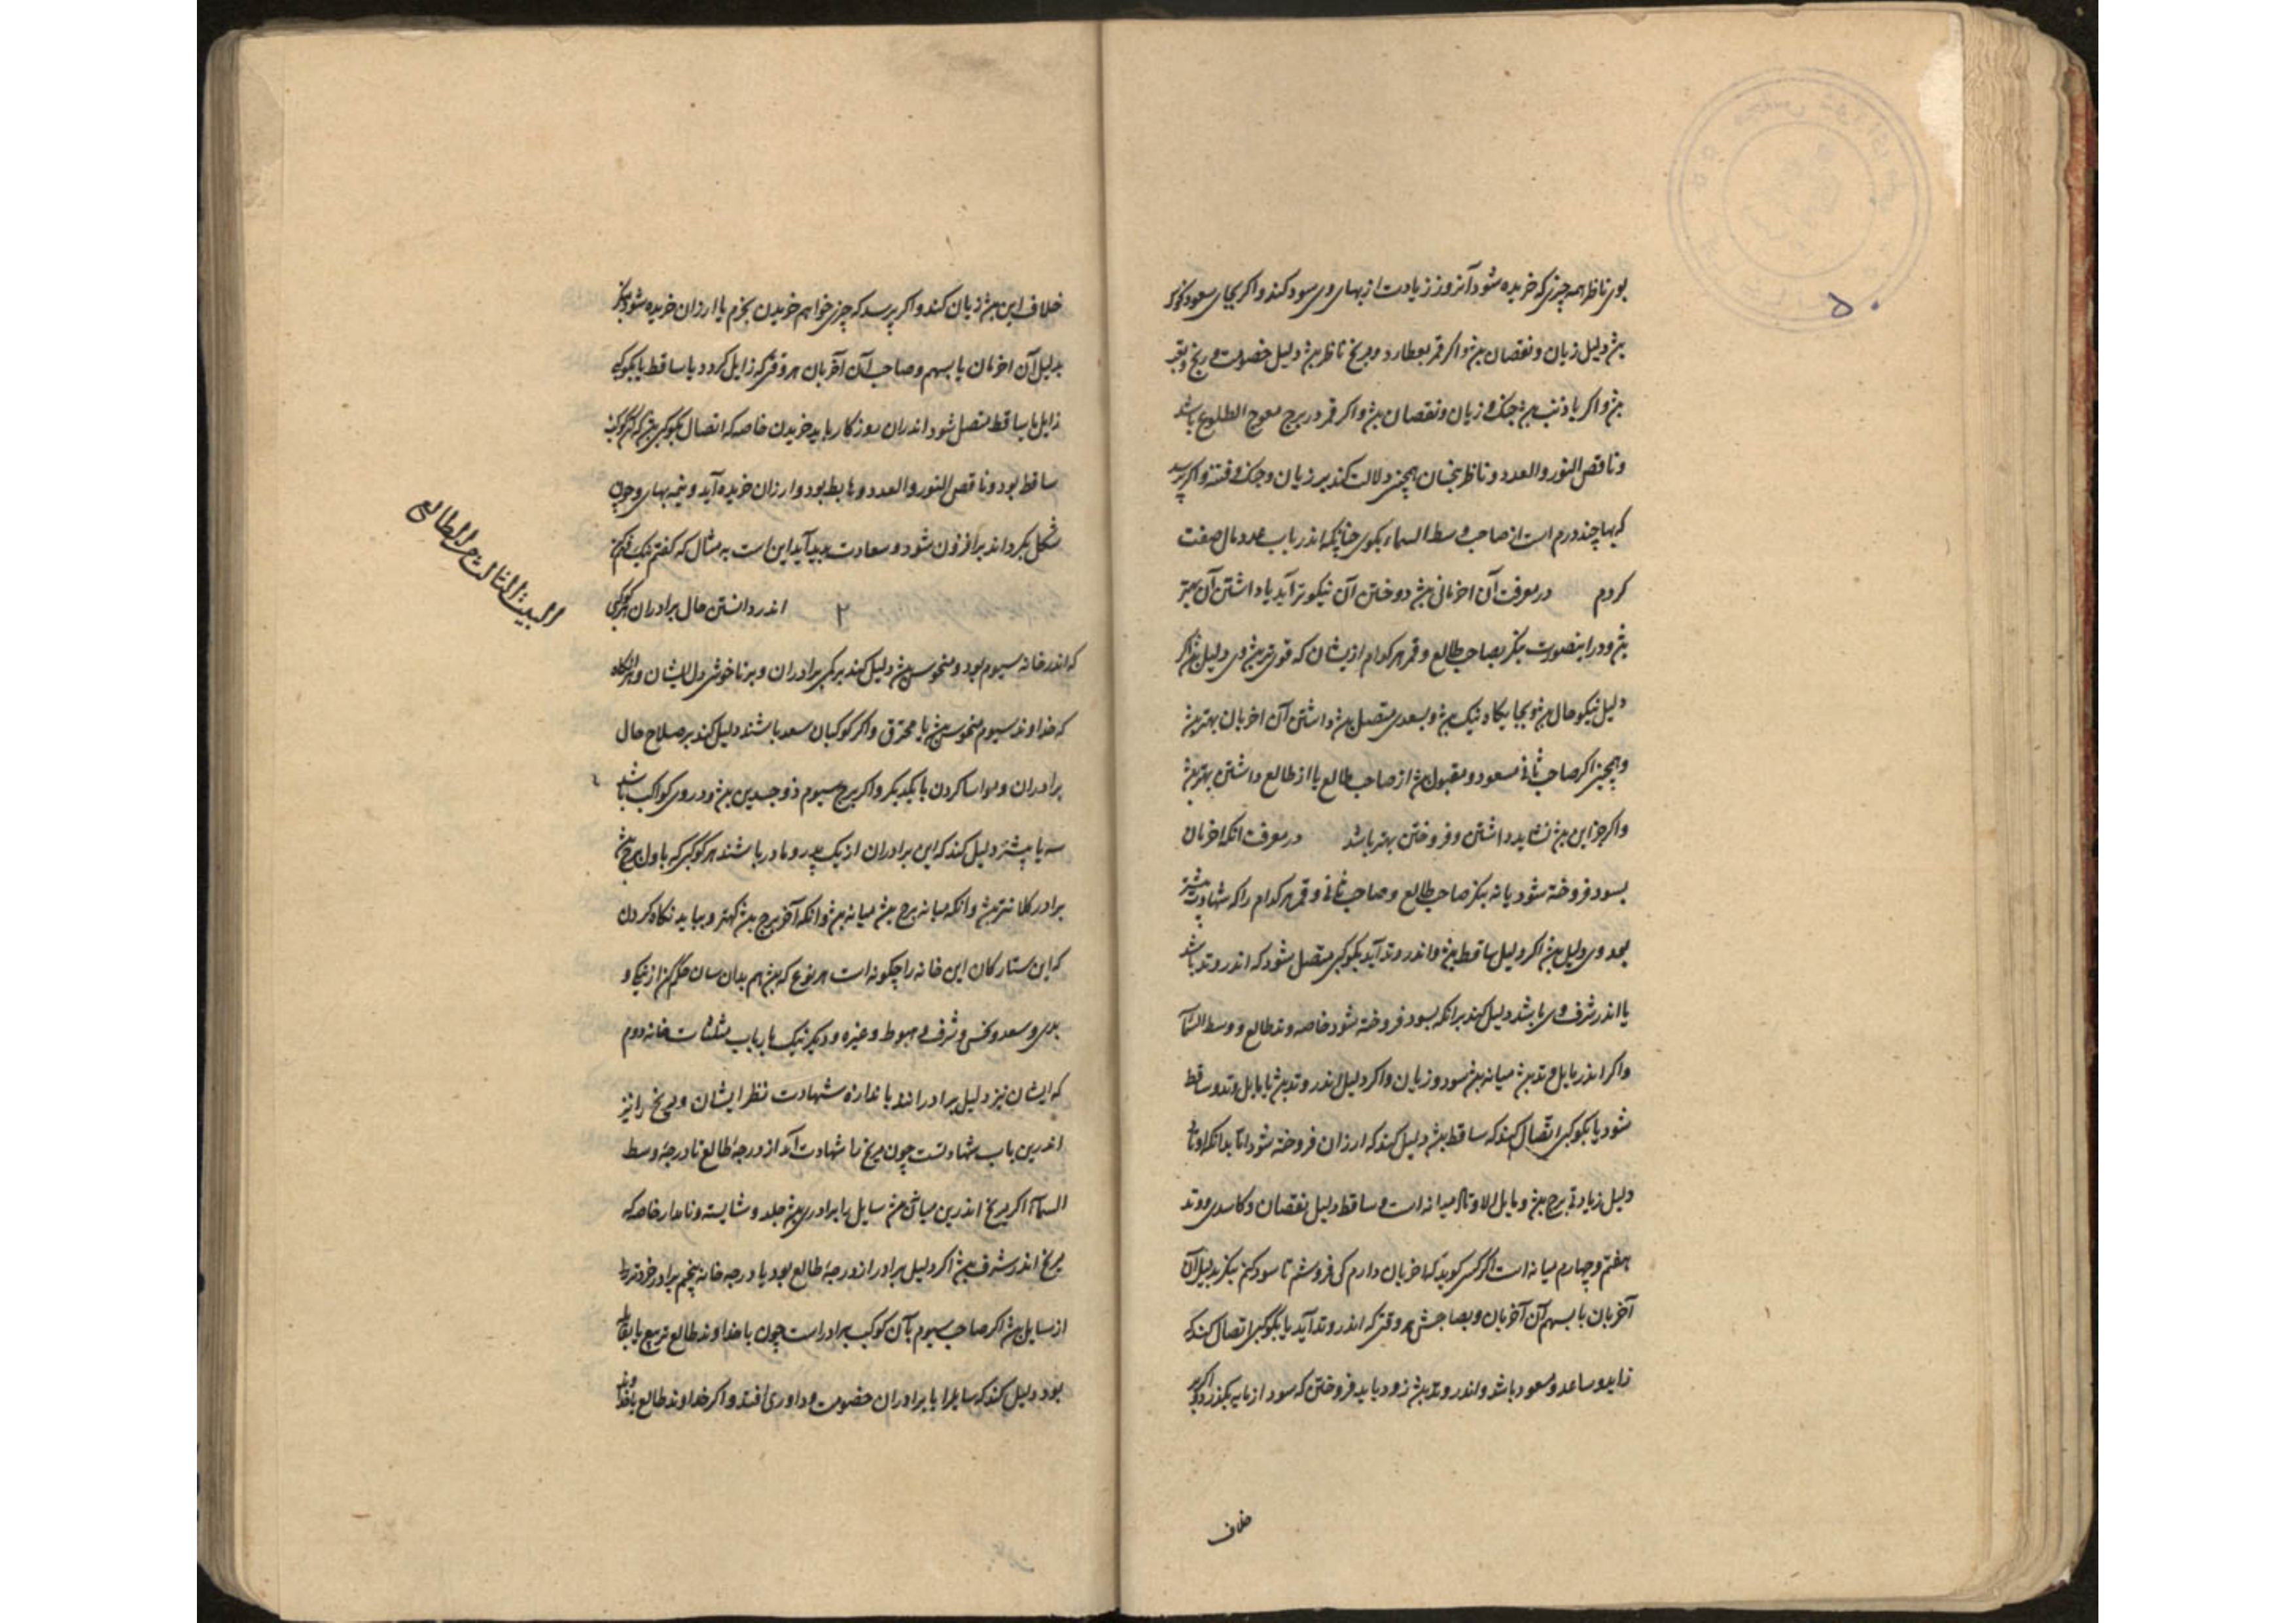 بوی ناظر همه چیزی که خریده شود آنروز زیادت از بهای وی سود کند و اگر بجای سعود نحوس
بش دلیل زیان و نقصان بش و اگر قمر بعطارد و مریخ ناظر بش دلیل خصومت و رنج و
بش و اگر با ذنب بش جنک و زیان و نقصان بش و اگر قمر در برج معوج الطلوع باشد
و ناقص النور و العدد و ناظر بنحسان همچنین دلالت کند بر زیان و جنک و فتنه و اگر پرسد
که بها چند درم است از صاحب وسط السماء بکوی چنانکه اندر باب عدد مال صفت
کردم در معرفت آن اخریانی بش دوختن آن نیکوتر آید یا داشتن آن بهتر
بش و درینصورت بنکر بصاحب طالع و قمر هر کدام ازیشان که قویتر بش وی دلیل بش اگر
دلیل نیکو حال بش و بجایگاه نیک بش و بسعدی متصل بش داشتن آن اخریان بهتر بش
و همچنین اگر صاحب ثانی مسعود و مقبول بش از صاحب طالع یا از طالع داشتن بهتر بش
و اگر جز این بش نشاید داشتن و فروختن بهتر باشد در معرفت آنکه اخریان
بسود فروخته شود یا نه بنکر صاحب طالع و صاحب ثانی و قمر هر کدام را که شهادت بیشتر
بود وی دلیل بش اگر دلیل ساقط بش و اندر وتد آید بکوکبی متصل شود که اندر وتد باشد
یا اندر شرف وی باشد دلیل کند برانکه بسود فروخته شود خاصه وتد طالع و وسط السما
و اگر اندر مایل وتد بش میانه بش سود و زیان و اگر دلیل اندر وتد بش یا مایل وتد و ساقط
شود یا بکوکبی اتصال کند که ساقط بش دلیل کند که ارزان فروخته شود اما بدانکه اوتاد
دلیل زیادتی برج بش و مایل الاوتاد میانه است و ساقط دلیل نقصان و کاسدی و وتد
هفتم و چهارم میانه است اگر کسی کوید که اخریان دارم کی فروشم تا سود کنم بنکر بدلیل آن
آخریان یا بسهم آن آخریان و بصاحبش هر وقتی که اندر وتد آید یا بکوکبی اتصال کند که
زاید و ساعد و مسعود باشد و اندر وتد بش زود باید فروختن که سود از مایه بکذرد و اگر
خلاف
خلاف این بش زیان کند و اگر پرسد که چیزی خواهم خریدن بخرم یا ارزان خریده شود بنکر
بدلیل آن اخریان یا بسهم و صاحب آن آخریان هر وقتی که زایل کردد یا ساقط یا بکوکبی
زایل یا ساقط متصل شود اندران روزکار باید خریدن خاصه که اتصال بکوکبی بش که آن کوکب
ساقط بود و ناقص النور و العدد و هابط بود و ارزان خریده آید و نیمه بهای و چون
شکل بکرداند برافزون شود و سعادت پدید آید این است به مثال که کفتم نیک
۳ اندر دانستن حال برادران هر کوکبی
که اندر خانه سیوم بود و منحوس بش دلیل کند بر کمی برادران و بر ناخوشی دل ایشان و هر آنگاه
که خداوند سیوم منحوس بش یا محترق و اگر کوکبان سعد باشند دلیل کند بر صلاح حال
برادران و مواسا کردن با یکدیگر و اگر برج سیوم ذوجسدین بش و در وی کواکب باشد
سه یا بیشتر دلیل کند که این برادران از یک پدر و مادر باشند هر کوکبی که باول برج بش
برادر کلانتر بش و آنکه میانه برج بش میانه بش و آنکه آخر برج بش کهتر و بباید نکاه کردن
که این ستارکان این خانه را چکونه است هر نوع که بش هم بدان سان حکم کن از نیکی و
بدی و سعد و نحس و شرف و هبوط و غیره و دیگر نیک بارباب مثلثات خانه دوم
که ایشان نیز دلیل برادراند باندازه شهادت نظر ایشان و مریخ را نیز
اندرین باب شهادتست چون مریخ با شهادت آمد از درجهٔ طالع تا درجهٔ وسط
السماء اگر مریخ اندرین میانش بش سایل را برادری بش جلد و شایسته و نامدار خاصه که
مریخ اندر شرف بش اگر دلیل برادر از درجهٔ طالع بود یا درجه خانه پنجم برادر خردتر بش
از سایل بش اگر صاحب سیوم یا آن کوکب برادر است چون با خداوند طالع تربیع یا مقابله
بود دلیل کند که سایل را با برادران خصومت و داوری افتد و اگر خداوند طالع با خداوند
البیت الثالث من الطالع